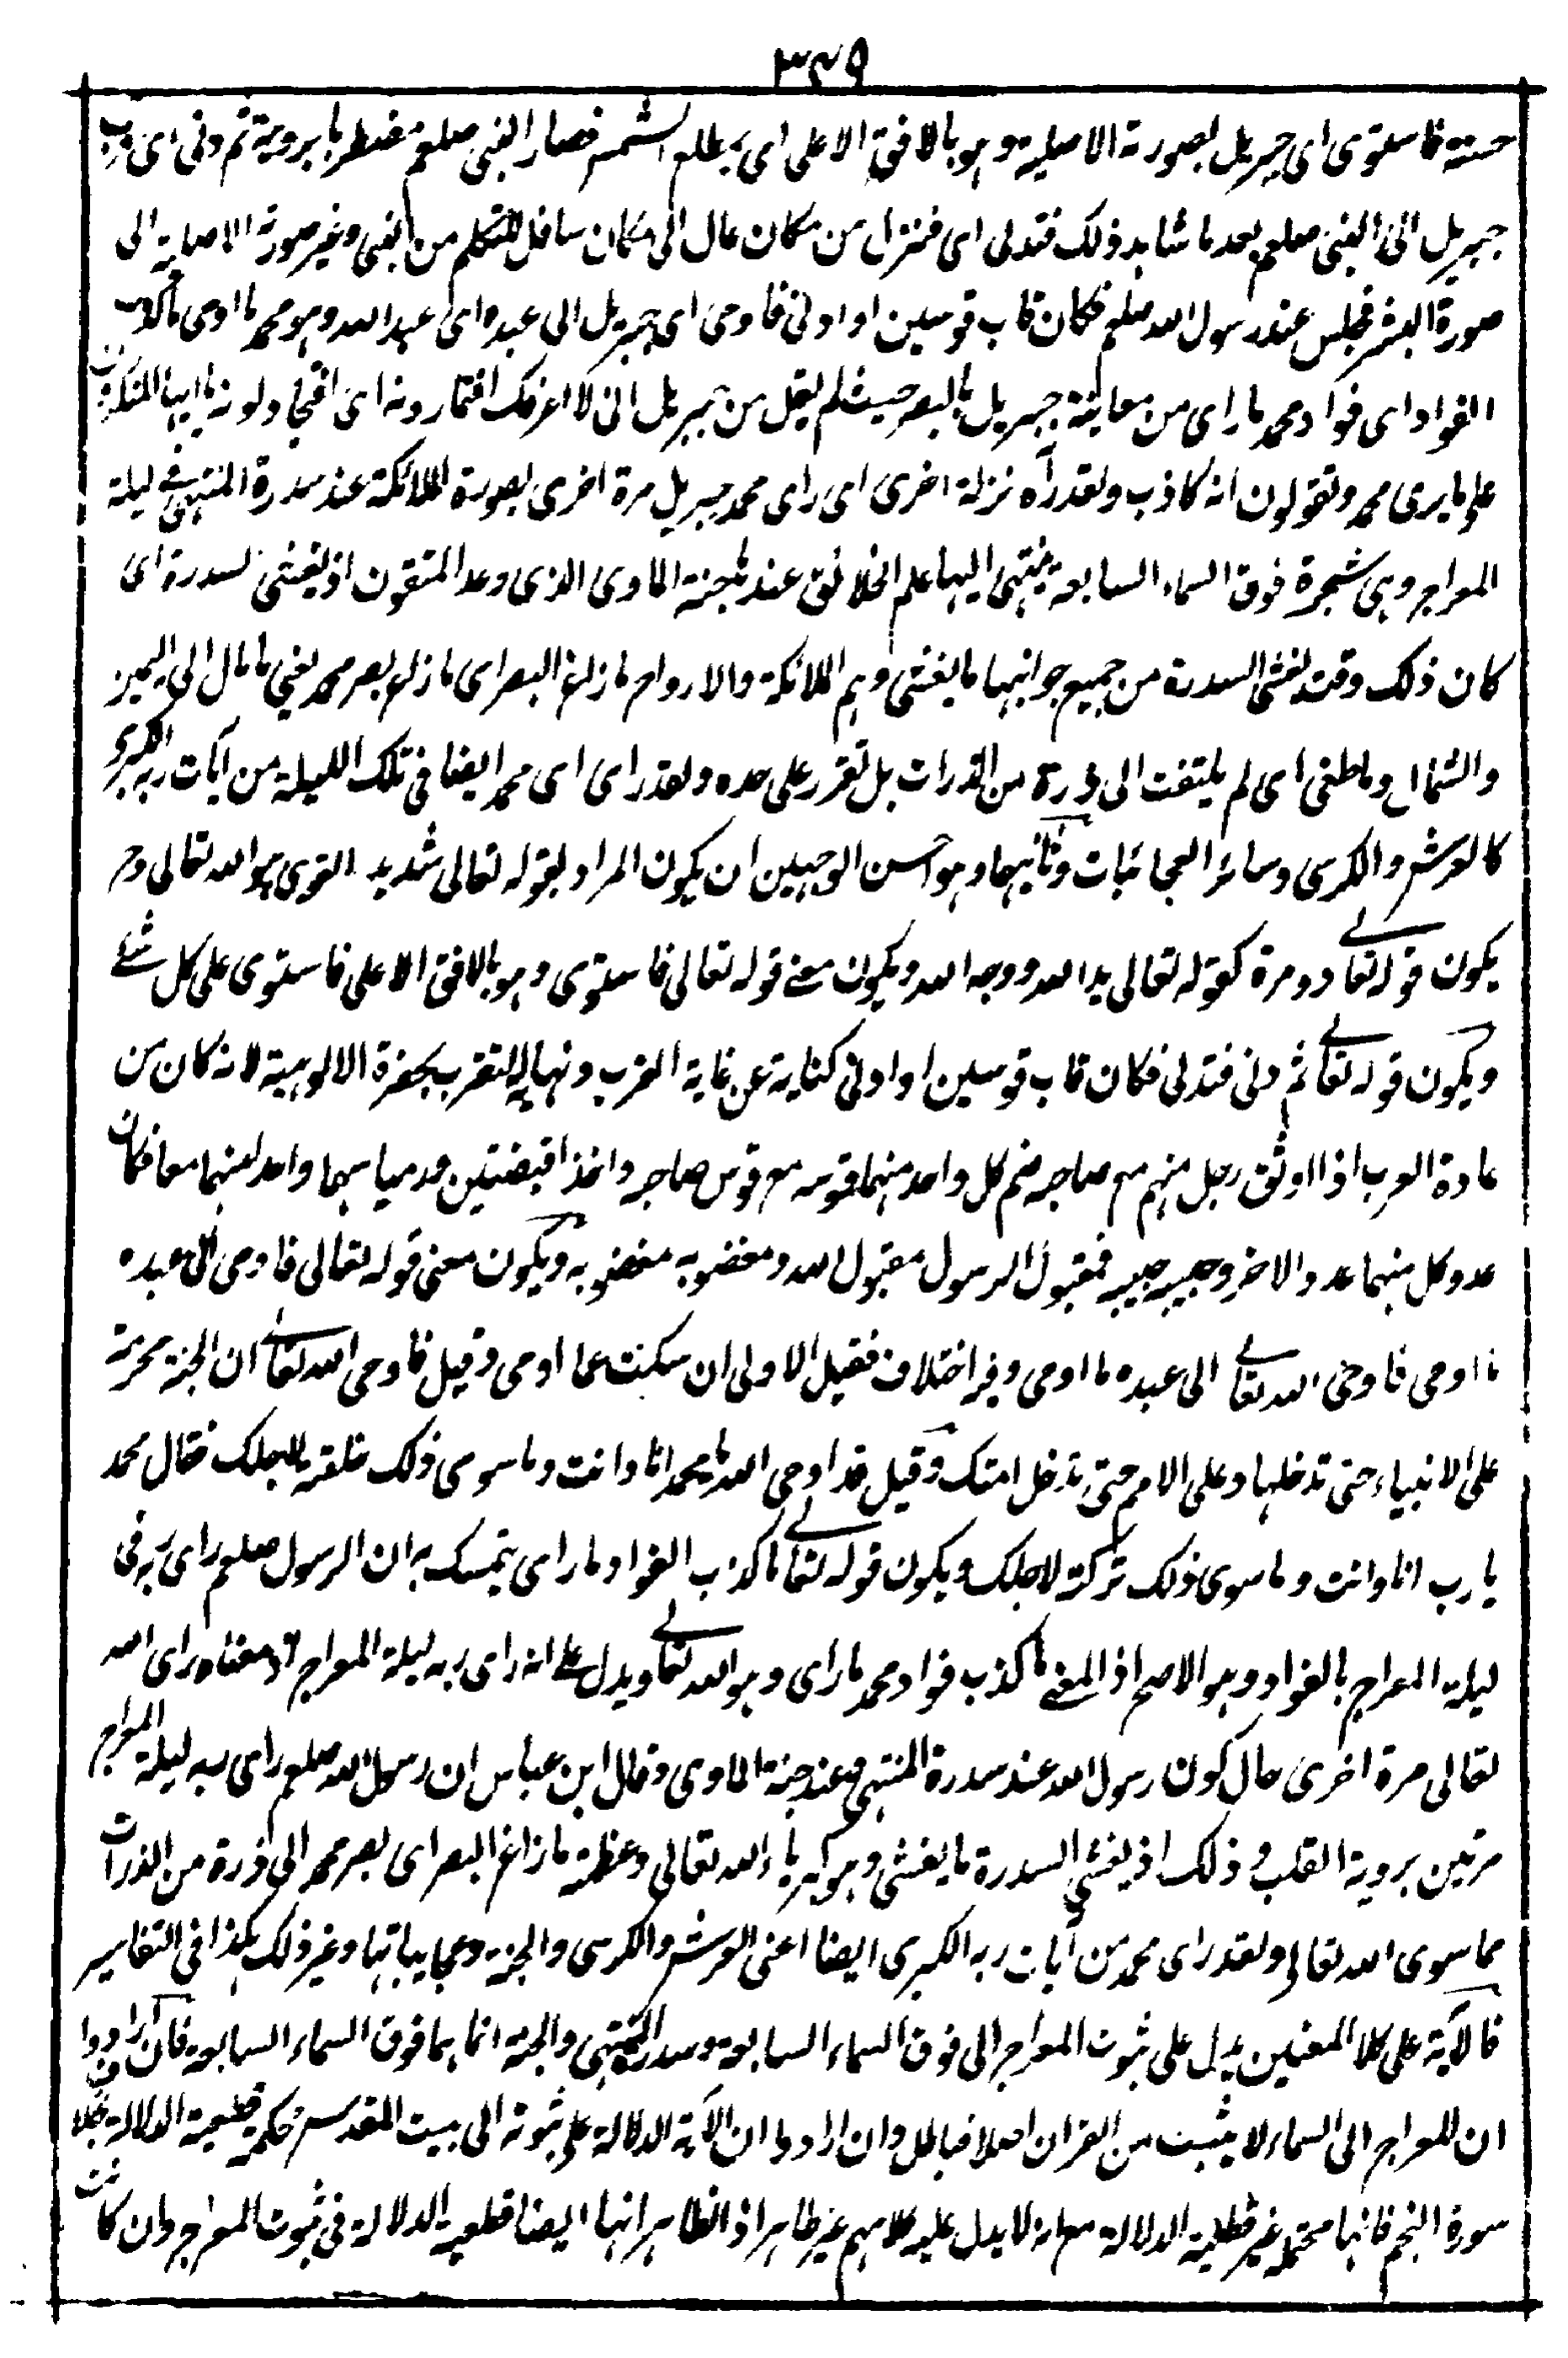 ۳۴۹
حسنة فاستوى اى جبريل بصورته الاصلية وهو بالافق الاعلى اى بمطلع الشمس فصار النبي صلعم مضطربا برويته ثم دنى اى قرب
جبريل الى النبي صلعم بعد ما شاهد ذلك فتدلى اى فتنزل من مكان عال الى مكان سافل للتكلم من النبي وغير صورته الاصلية الى
صورة البشر فجلس عند رسول الله صلعم فكان قاب قوسين او ادنى فاوحى اى جبريل الى عبده اى عبد الله وهو محمد ما اوحى ما كذب
الفواد اى فواد محمد ما راى من معاينة جبريل بالبصر حيث لم يقل من جبريل انى لا اعرفك افتمارونه اى افتجادلونه يا ايها المنكرون
على ما يرى محمد وتقولون انه كاذب ولقد رآه نزلة اخرى اى راى محمد جبريل مرة اخرى بصورة الملائكة عند سدرة المنتهى فى ليلة
المعراج وهى شجرة فوق السماء السابعة ينتهى اليها علم الخلائق عندها جنة الماوى الذى وعد المتقون اذ يغشى السدرة اى
كان ذلك وقت يغشى السدرة من جميع جوانبها ما يغشى وهم الملائكة والارواح ما زاغ البصر اى ما زاغ بصر محمد يعنى ما مال الى اليمين
والشمال وما طغى اى لم يلتفت الى ذرة من الذرات بل تقرر على حده ولقد راى اى محمد ايضا فى تلك الليلة من آيات ربه الكبرى
كالعرش والكرسى وسائر العجائبات وثانيهما وهو احسن الوجهين ان يكون المراد بقوله تعالى شديد القوى هو الله تعالى وح
يكون قوله تعالى ذو مرة كقوله تعالى يد الله ووجه الله ويكون معنى قوله تعالى فاستوى وهو بالافق الاعلى فاستوى على كل شئ
ويكون قوله تعالى ثم دنى فتدلى فكان قاب قوسين او ادنى كناية عن غاية القرب ونهاية التقرب بحضرة الالوهية لانه كان من
عادة العرب اذا اوثق رجل منهم مع صاحبه ضم كل واحد منهما قوسه مع قوس صاحبه واخذا قبضتين ورميا سهما واحد منهما معا فكان
عدو كل منهما عدو الاخر وحبيبه حبيبه فمقبول الرسول مقبول الله ومغضوبه مغضوبه ويكون معنى قوله تعالى فاوحى الى عبده
ما اوحى فاوحى الله تعالى الى عبده ما اوحى وفيه اختلاف فقيل الاولى ان سكنت عما اوحى وقيل فاوحى الله تعالى ان الجنة محرمة
على الانبياء حتى تدخلها وعلى الامم حتى تدخل امتك وقيل قد اوحى الله يا محمد انا وانت وما سوى ذلك خلقته لاجلك فقال محمد
يا رب انا وانت وما سوى ذلك تركته لاجلك ويكون قوله تعالى ما كذب الفواد ما راى يتمسك به ان الرسول صلعم راى ربه فى
ليلة المعراج بالفواد وهو الاصح اذ المعنى ما كذب فواد محمد ما راى وهو الله تعالى ويدل على انه راى ربه ليلة المعراج اذ معناه راى الله
تعالى مرة اخرى حال كون رسول الله عند سدرة المنتهى وعند جنة الماوى وقال ابن عباس ان رسول الله صلعم راى ربه ليلة المعراج
مرتين بروية القلب و ذلك اذ يغشى السدرة ما يغشى وهو كبرياء الله تعالى وعظمة ما زاغ البصر اى بصر محمد الى ذرة من الذرات
مما سوى الله تعالى ولقد راى محمد من آيات ربه الكبرى ايضا اعنى العرش والكرسى والجنة وعجايباتها وغير ذلك هكذا فى التفاسير
فالآية على كلا المعنيين يدل على ثبوت المعراج الى فوق السماء السابعة وسدرة المنتهى والجنة انما هما فوق السماء السابعة فان ارادوا
ان المعراج الى السماء لا يثبت من القران اصلا فباطل وان ارادوا ان الآية الدلالة على ثبوته الى بيت المقدس محكمة قطعية الدلالة بخلاف
سورة النجم فانها محتملة غير قطعية الدلالة مع انه لا يدل عليه كلامهم غير ظاهر اذ الظاهر انها ايضا قطعية الدلالة فى ثبوت المعراج وان كانت